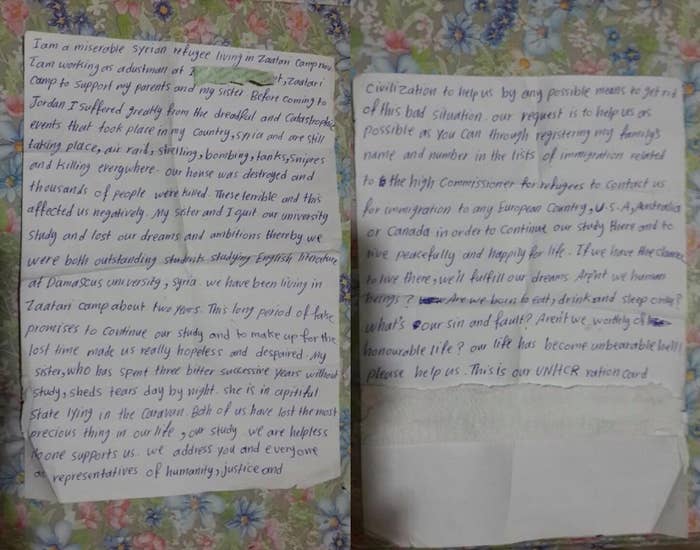 I am a miserable Syrian refugee living in Zaatari Camp now
I am working as a dustman at I t, Zaatari
Camp to support my parents and my sister. Before coming to
Jordan I suffered greatly from the dreadful and Catastrophic
events that took place in my Country, syria and are still
taking place, air raid, shelling, bombing, tanks, snipres
and killing everywhere. our house was destroyed and
thousands of people were killed. These terrible and this
affected us negatively. My sister and I quit our university
study and lost our dreams and ambitions thereby we
were both outstanding students studying English literature
at Damascus university, syria. we have been living in
Zaatari camp about two years. This long period of false
promises to continue our study and to make up for the
lost time made us really hopeless and despaired. My
sister, who has spent three bitter successive years without
study, sheds tears day by night. she is in a pitiful
state lying in the Caravan. Both of us have lost the most
precious thing in our life, our study. we are helpless
no one supports us. we address you and everyone
as representatives of humanity, justice and
Civilization to help us by any possible means to get rid
of this bad situation. our request is to help us as
possible as you can through registering my family's
name and number in the lists of immigration related
to the high Commissioner for refugees to contact us
for immigration to any European Country, U.S.A, Australia
or Canada in order to Continue our study there and to
live peacefully and happily for life. If we have the chance
to live there, we'll fulfill our dreams. Aren't we human
beings? Are we born to eat, drink and sleep only?
what's our sin and fault? Aren't we worthy of
honourable life? our life has become unbearable hell!
please help us. This is our UNHCR ration card